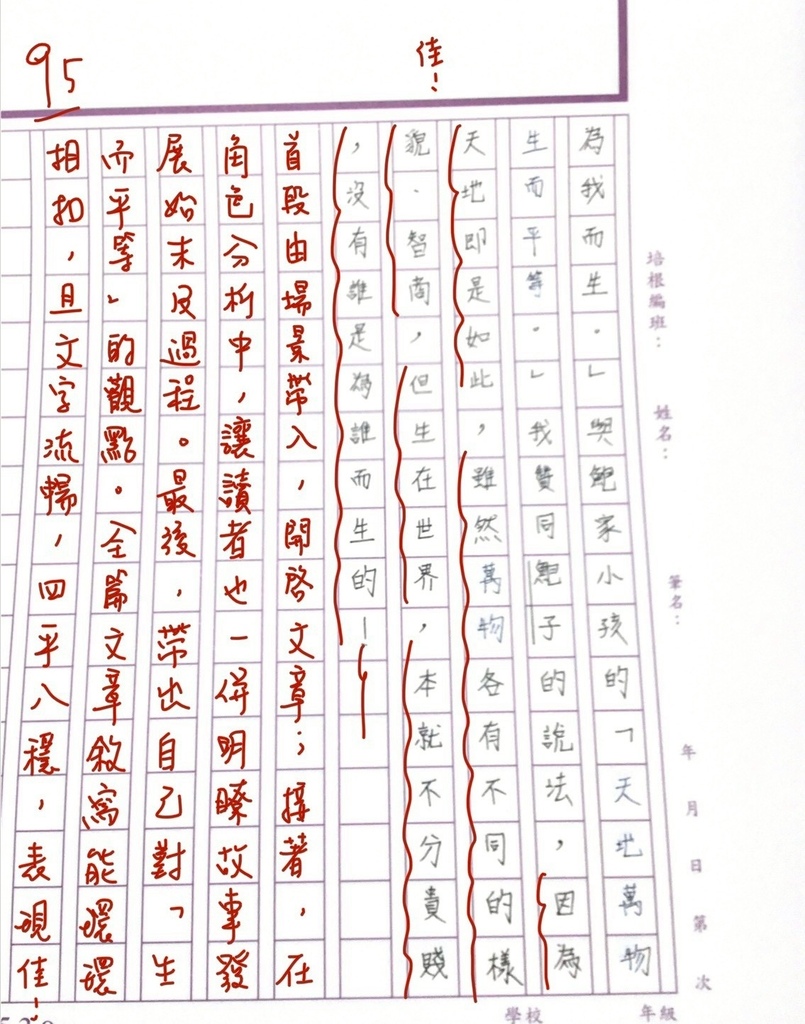 培根編班： 姓名： 筆名： 年 月 日 第 次
為我而生。」與鮑家小孩的「天地萬物
生而平等。」我贊同鮑子的說法，因為
天地即是如此，雖然萬物各有不同的樣
貌、智商，但生在世界，本就不分貴賤
，沒有誰是為誰而生的！
佳！
首段由場景帶入，開啓文章；接著，在
角色分析中，讓讀者也一併明瞭故事發
展始末及過程。最後，帶出自己對「生
而平等」的觀點。全篇文章敘寫能環環
相扣，且文字流暢，四平八穩，表現佳！
95
學校 年級